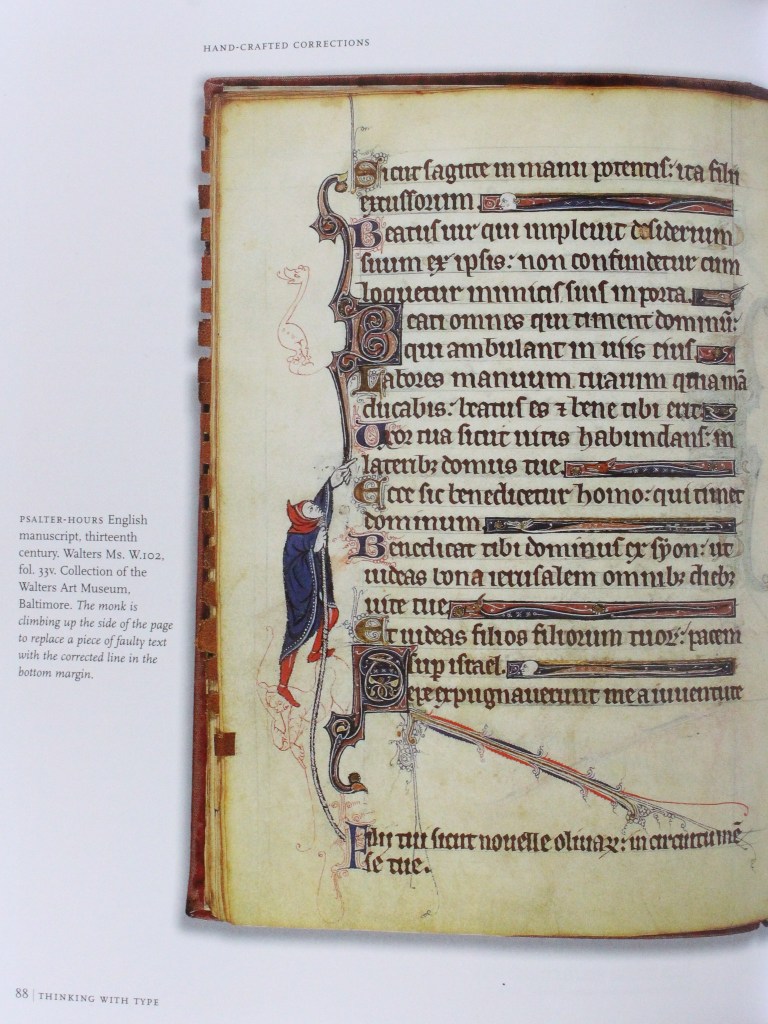 HAND-CRAFTED CORRECTIONS
Sicut sagitte in manu potentis: ita filii
excussorum.
Beatus uir qui impleuit desiderium
suum ex ipsis: non confundetur cum
loquetur inimicis suis in porta.
Beati omnes qui timent dominū:
qui ambulant in uiis eius.
Labores manuum tuarum quia mā
ducabis: beatus es ⁊ bene tibi erit.
Uxor tua sicut uitis habundans: in
lateribꝫ domus tue.
Ecce sic benedicetur homo: qui timet
dominum.
Benedicat tibi dominus ex syon: ut
uideas bona ierusalem omnibꝫ diebꝫ
uite tue.
Et uideas filios filiorum tuoꝝ: pacem
sup israel.
Sepe expugnauerunt me a iuuentute
Filii tui sicut nouelle oliuaꝝ: in circuitu mē
se tue.
PSALTER-HOURS English
manuscript, thirteenth
century. Walters Ms. W.102,
fol. 33v. Collection of the
Walters Art Museum,
Baltimore. The monk is
climbing up the side of the page
to replace a piece of faulty text
with the corrected line in the
bottom margin.
88 | THINKING WITH TYPE